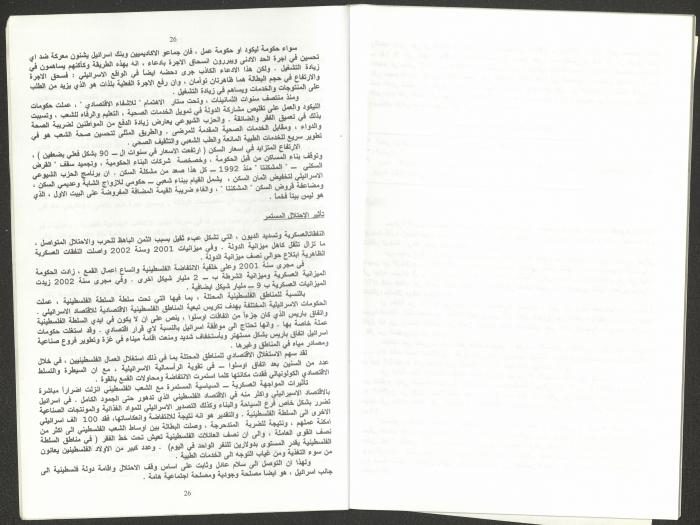 26
سواء حكومة ليكود او حكومة عمل ، فان جماعو الاكاديميين وبنك اسرائيل يشنون معركة ضد اي
تحسين في اجرة الحد الادنى ويبررون انسحاق الاجرة بادعاء ، انه بهذه الطريقة وكأنهم يساهمون في
زيادة التشغيل . ولكن هذا الادعاء الكاذب جرى دحضه ايضا في الواقع الاسرائيلي : فسحق الاجرة
والارتفاع في حجم البطالة هما ظاهرتان توأمان ، وان رفع الاجرة الفعلية بلذات هو الذي يزيد من الطلب
على المنتوجات والخدمات ويساهم في زيادة التشغيل .
ومنذ منتصف سنوات الثمانينات ، وتحت ستار الاهتمام " للاشفاء الاقتصادي " ، عملت حكومات
الليكود والعمل على تقليص مشاركة الدولة في تمويل الخدمات الصحية ، التعليم والرفاه للشعب ، وتسببت
بذلك في تعميق الفقر والضائقة . والحزب الشيوعي يعارض زيادة الدفع من المواطنين لضريبة الصحة
والدواء ، ومقابل الخدمات الصحية المقدمة للمرضى . والطريق المثلى لتحسين صحة الشعب هو في
تطوير سريع للخدمات الطبية المانعة والطب الشعبي والتثقيف الصحي .
الارتفاع المتزايد في اسعار السكن ( ارتفعت الاسعار في سنوات ال ــ 90 بشكل فعلي بضعفين ) ،
وتوقف بناء المساكن من قبل الحكومة ، وخصخصة شركات البناء الحكومية ، وتجميد سقف " القرض
السكني ــ " المشكنتا " منذ 1992 ــ كل هذا صعد من مشكلة السكن . ان برنامج الحزب الشيوعي
الاسرائيلي لتخفيض اثمان السكن ، يشمل القيام ببناء شعبي ــ حكومي للازواج الشابة وعديمي السكن ،
ومضاعفة قروض السكن " المشكنتا " ، والغاء ضريبة القيمة المضافة المفروضة على البيت الاول ، الذي
هو ليس بيتاً فخماً .
تأثير الاحتلال المستمر
النفقات العسكرية وتسديد الديون ، التي تشكل عبء ثقيل بسبب الثمن الباهظ للحرب والاحتلال المتواصل ،
ما تزال تثقل كاهل ميزانية الدولة . وفي ميزانيات 2001 وسنة 2002 واصلت النفقات العسكرية
الظاهرية ابتلاع حوالي نصف ميزانية الدولة .
في مجرى سنة 2001 وعلى خلفية الانتفاضة الفلسطينية واتساع اعمال القمع ، زادت الحكومة
الميزانية العسكرية وميزانية الشرطة ب ــ 2 مليار شيكل اخرى . وفي مجرى سنة 2002 زيدت
الميزانيات العسكرية ب 9 ــ مليار شيكل ايضافية .
بالنسبة للمناطق الفلسطينية المحتلة ، بما فيها التي تحت سلطة السلطة الفلسطينية ، عملت
الحكومات الاسرائيلية المختلفة بهدف تكريس تبعية المناطق الفلسطينية الاقتصادية للاقتصاد الاسرايلي .
واتفاق باريس الذي كان جزءاً من اتفاقات اوسلوا ، ينص على ان لا يكون في ايدي السلطة الفلسطينية
عملة خاصة بها . وانها تحتاج الى موافقة اسرائيل بالنسبة لاي قرار اقتصادي . وقد استغلت حكومات
اسرائيل اتفاق باريس بشكل مستهتر وبأستخفاف شديد ومنعت اقامة ميناء في غزة وتطوير فروع صناعية
ومصادر مياه في المناطق وغيرها .
لقد سهم الاستغلال الاقتصادي للمناطق المحتلة بما في ذلك استغلال العمال الفلسطينيين ، في خلال
عدد من السنين بعد اتفاق اوسلوا ــ في تقوية الرأسمالية الاسرايلية ، مع ان السيطرة والتسلط
الاقتصادي الكولونيالي فقدت مكانتها كلما استمرت الانتفاضة ومحاولات القمع بالقوة .
تأثيرات المواجهة العسكرية ــ السياسية المستمرة مع الشعب الفلسطيني انزلت اضراراً مباشرة
بالاقتصاد الاسرايلي واكثر منه في الاقتصاد الفلسطيني الذي تدهور حتى الجمود الكامل . في اسرايل
تضرر بشكل خاص فرع السياحة والبناء وكذلك التصدير الاسرايلي للمواد الغذائية والمونتجات الصناعية
الاخرى الى السلطة الفلسطينية . والتقدير هو انه نتيجة للانتفاضة وانعكاساتها، فقد 100 الف اسرايلي
امكنة عملهم ، ونتيجة للضربة المتدحرجة ، وصلت البطالة بين اوساط الشعب الفلسطيني الى اكثر من
نصف القوى العاملة ، والى ان نصف العائلات الفلسطينية تعيش تحت خط الفقر ( في مناطق السلطة
الفلسطينية يقدر المستوى بدولارين للنفر الواحد في اليوم) . وعدد كبير من الاولاد الفلسطينين يعانون
من سوء التغذية ومن غياب التوجه الى الخدمات الطبية .
ولهذا ان التوصل الى سلام عادل وثابت على اساس وقف الاحتلال واقامة دولة فلسطينية الى
جانب اسرائيل ، هو ايضا مصلحة وجودية ومصلحة اجتماعية هامة .
26